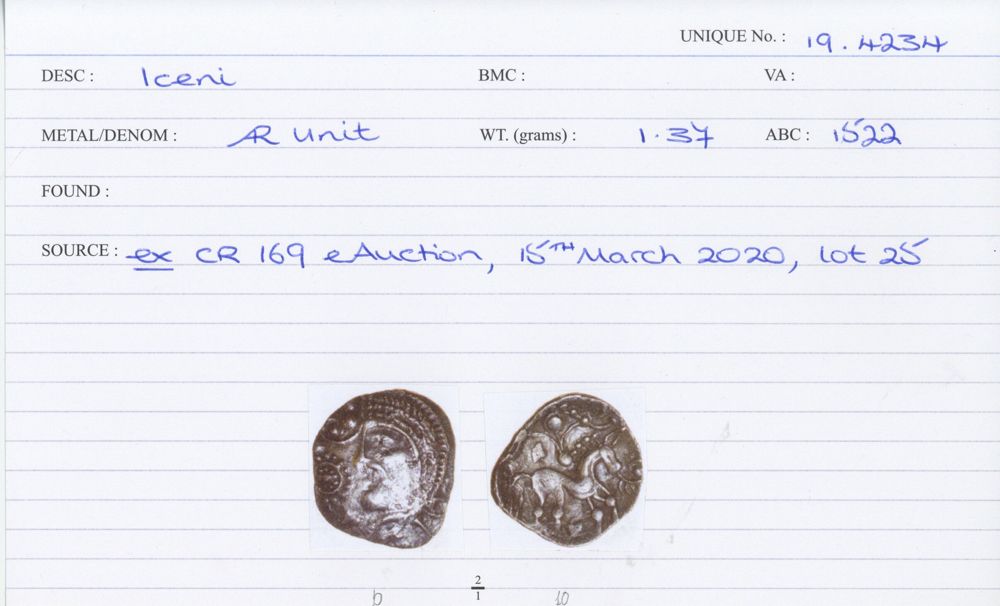 UNIQUE No. : 19.4234
DESC : Iceni BMC : VA :
METAL/DENOM : AR Unit WT. (grams) : 1.37 ABC : 1522
FOUND :
SOURCE : ex CR 169 eAuction, 15TH March 2020, lot 25
2
1
10